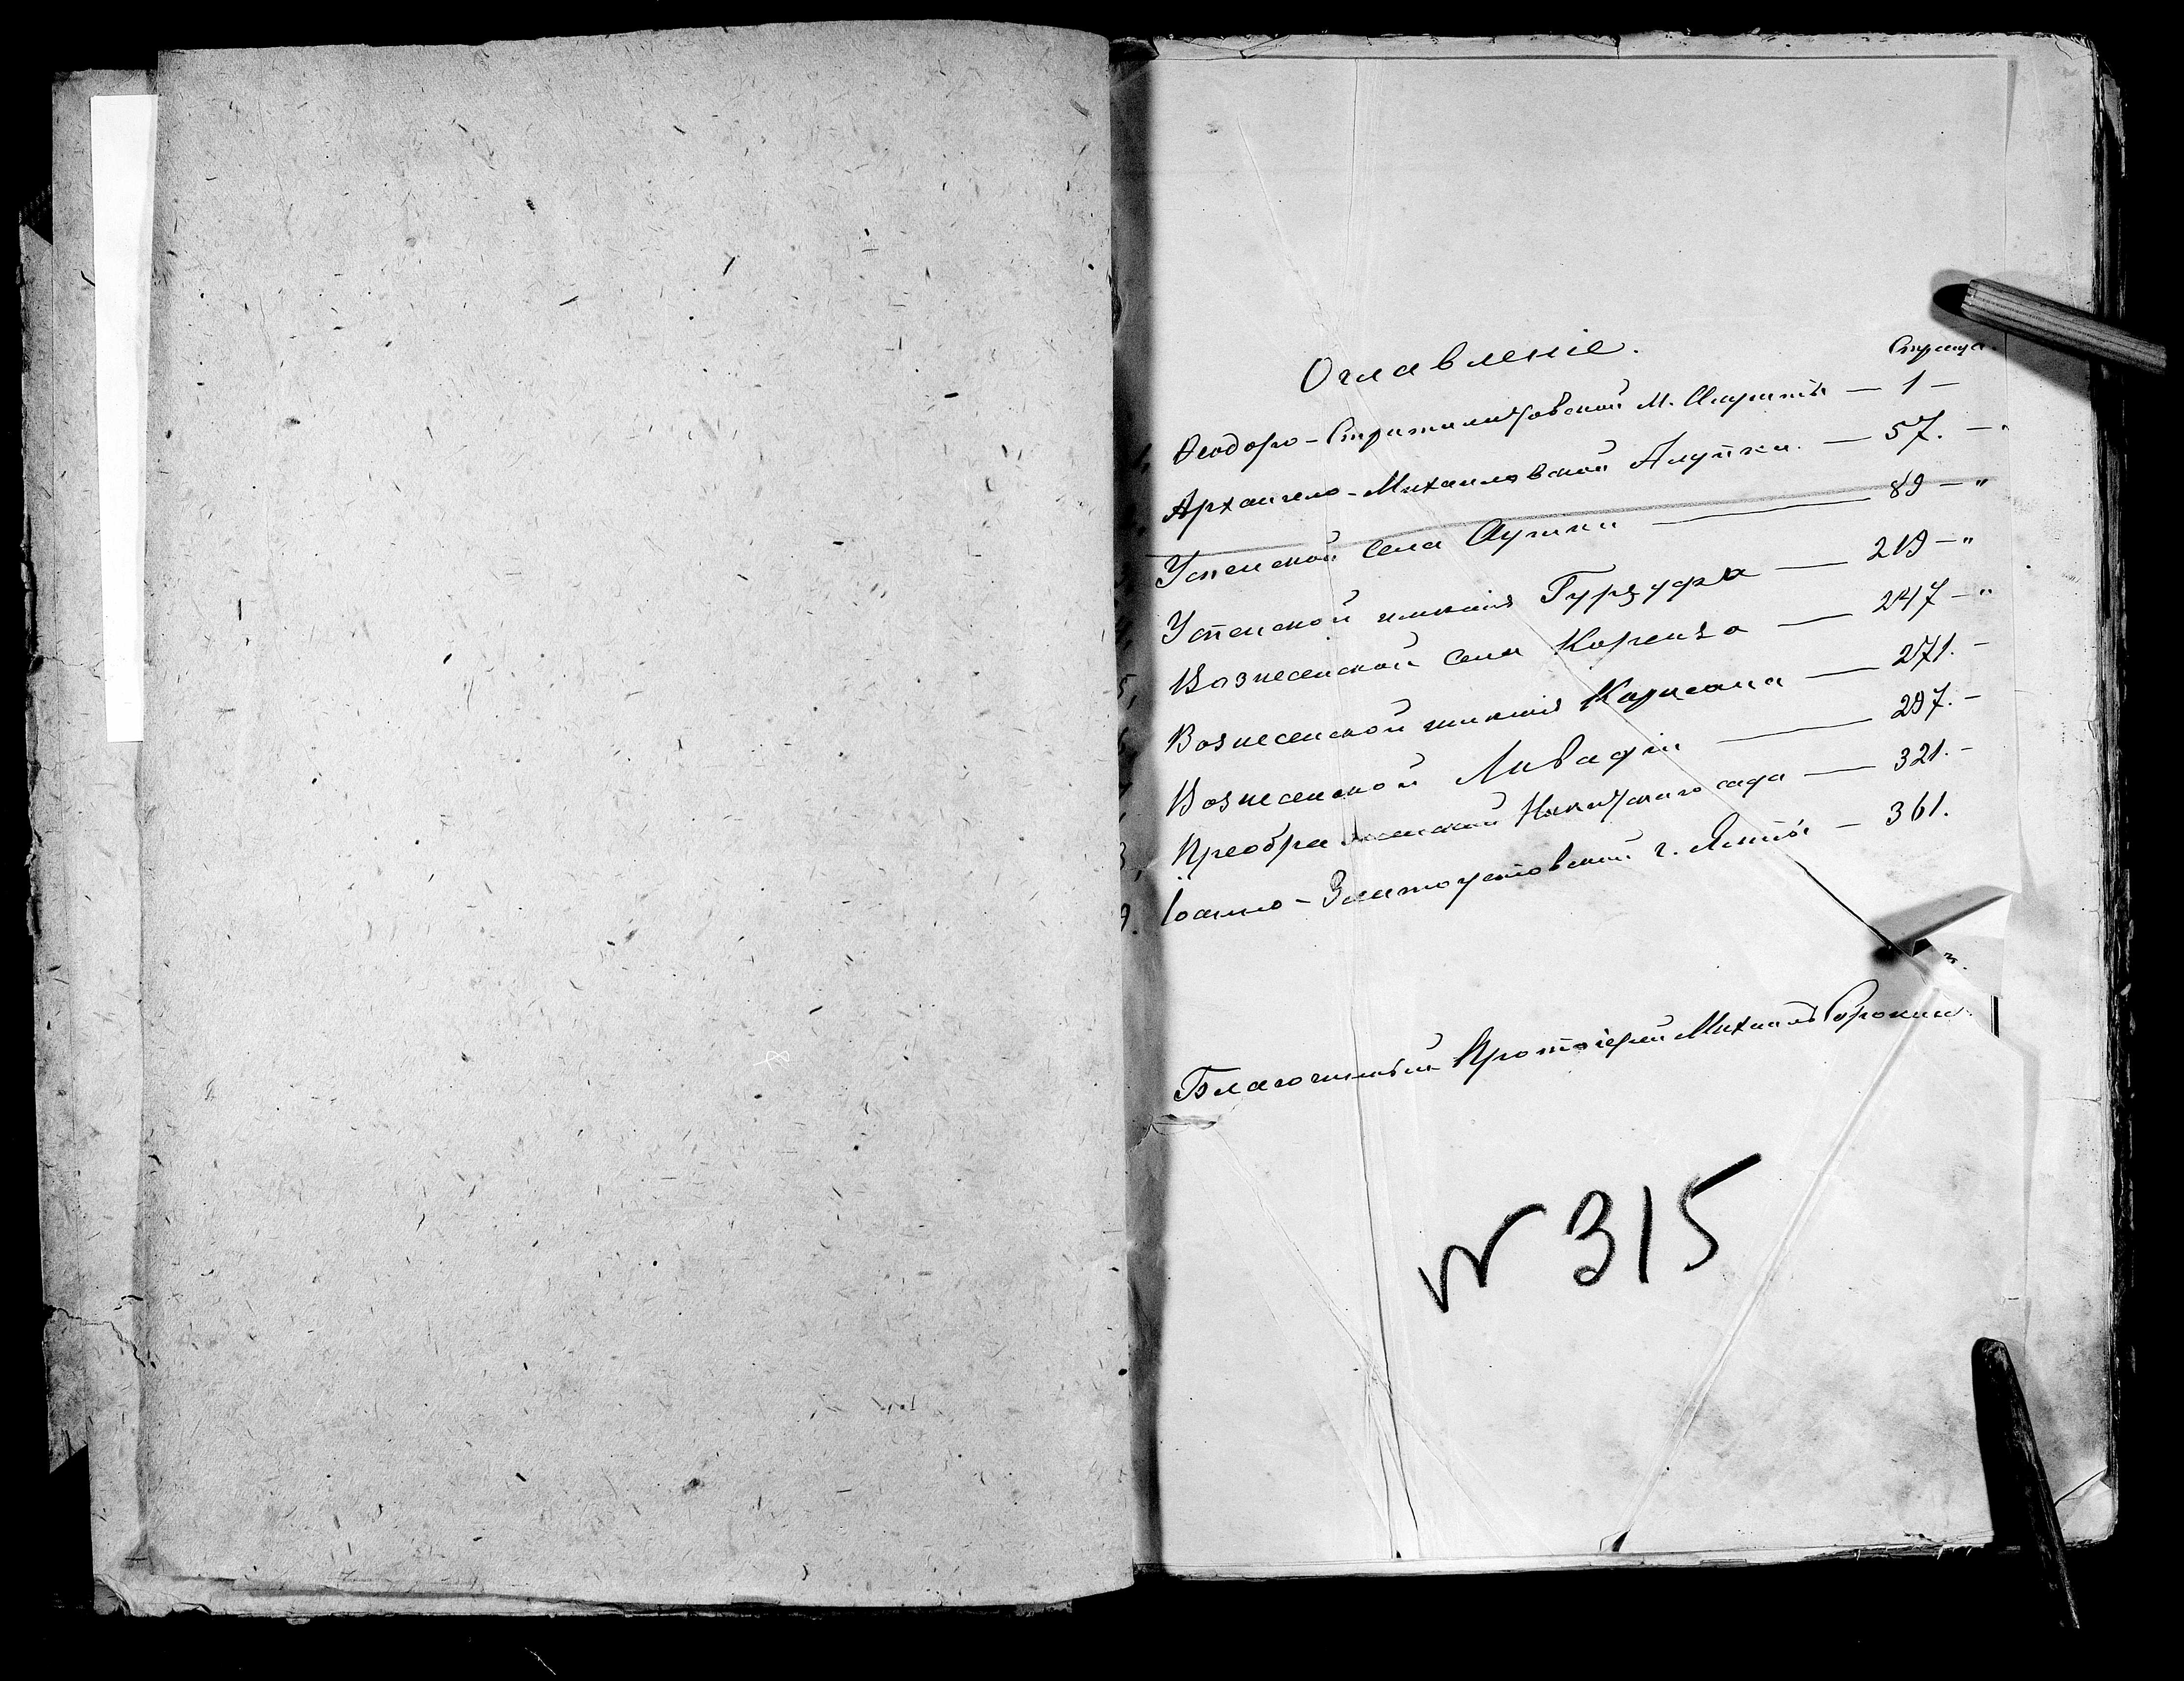 Оглавленіе.
Страца.
Ѳеодоро-Стратилатовской м. Алушты — 1 —
Архангело-Михаиловской Алупки. — 57. —
Успенской села Аутки — 89 — "
Успенской имѣнія Гурзуфа — 219 — "
5, Вознесенской села Кореиза — 247 — "
Вознесенской имѣнія Карасана — 271. —
Вознесенской Ливадіи — 297. —
Преображенской Никитскаго сада — 321. —
9. Іоанно-Златоустовской г. Ялты — 361.
Благочинный Протоіерей Михаилъ Сорокин
№ 315